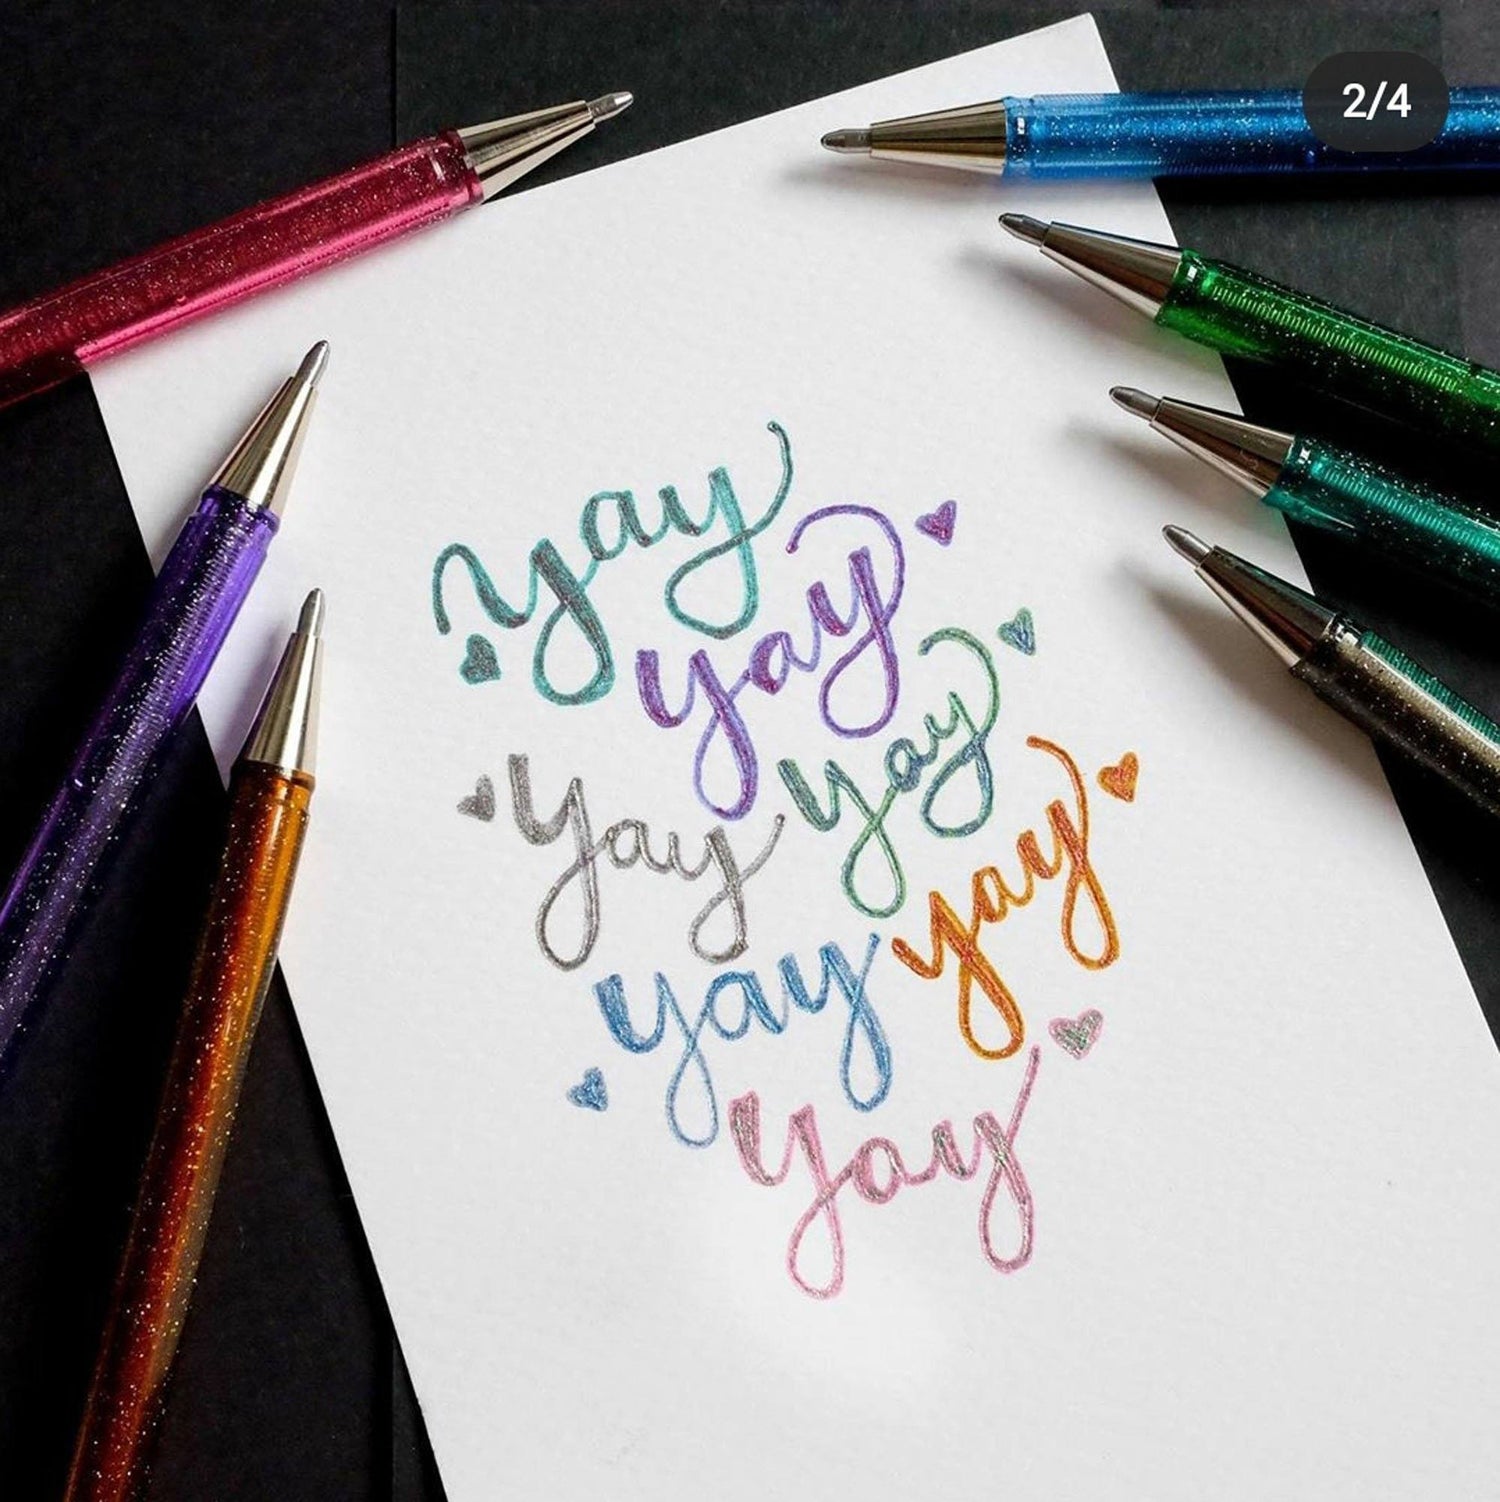 2/4
yay
yay
yay
yay
yay
yay
yay